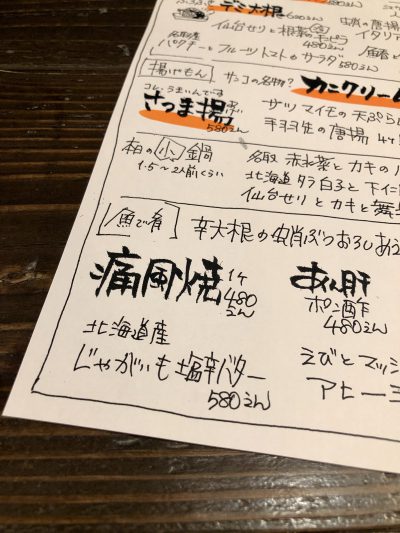 ミミ大根 680えん
仙台セリと根菜
480えん
虫肖の唐揚
イタリア
名取産
パクチーとフルーツトマトのサラダ 580えん
魚春と
揚げもん
サンコの名物?
カニクリーム
コレ・うまいんです
さつま揚げ
580えん
サツマイモの天ぷら
手羽先の唐揚 4ケ
本日の小鍋
1.5〜2人前くらい
名取 赤水菜とカキの
北海道タラ白子と下仁
仙台セリとカキと舞
魚で肴
辛大根の虫肖ぶつおろしあえ
痛風焼 1ケ 480えん
あん肝
ポン酢
480えん
北海道産
じゃがいも塩辛バター
580えん
えびとマッシ
アヒージ